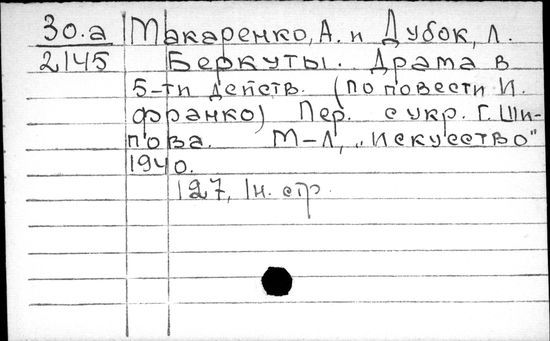 30.а Макаренко, А. и Дубок, Л.
2145 Беркуты. Драма в
5-ти действ. (По повести И.
Франко) Пер. с укр. Г. Ши-
пова. М-Л, „Искусство"
1940.
127, 1н. стр.